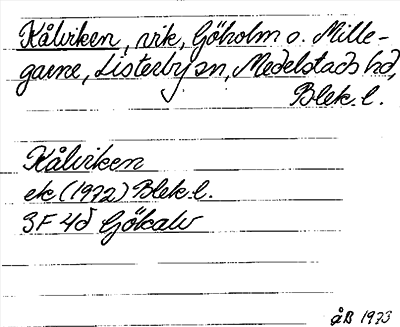 Kålviken, vik, Göholm o. Mille-
garne, Listerby sn, Medelstads hd,
Blek. l.
Kålviken
ek (1972) Blek. l.
3F 4d Gökalv
åB 1973